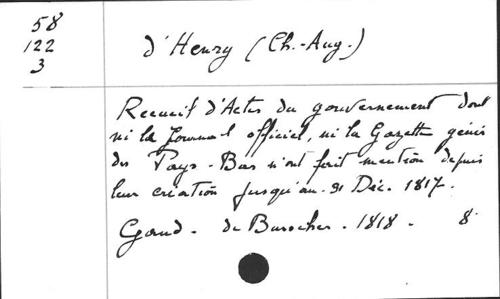 58
122
3
d'Henry (Ch.-Aug.)
Recueil d'Actes du gouvernement dont
ni le Journal officiel, ni la Gazette génér
des Pays-Bas n'ont fait mention depuis
leur création jusqu'au 31 Déc. 1817.
Gand. - de Busscher. - 1818 - 8°